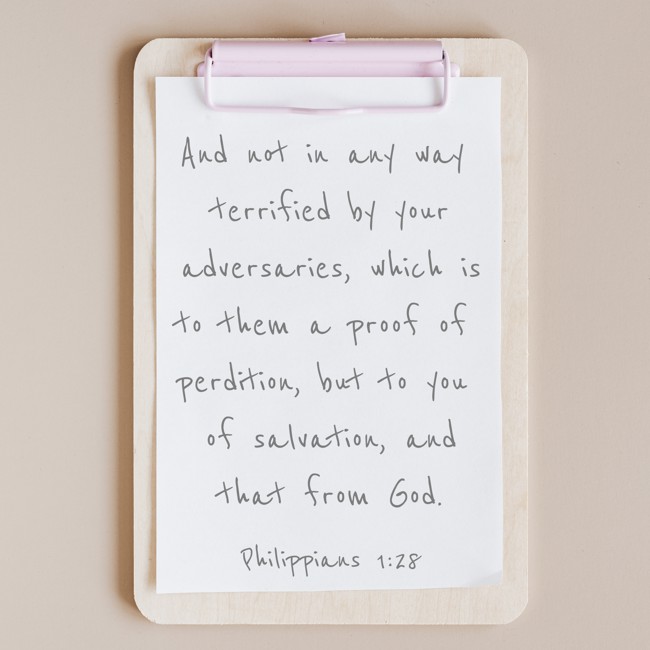 And not in any way
terrified by your
adversaries, which is
to them a proof of
perdition, but to you
of salvation, and
that from God.
Philippians 1:28